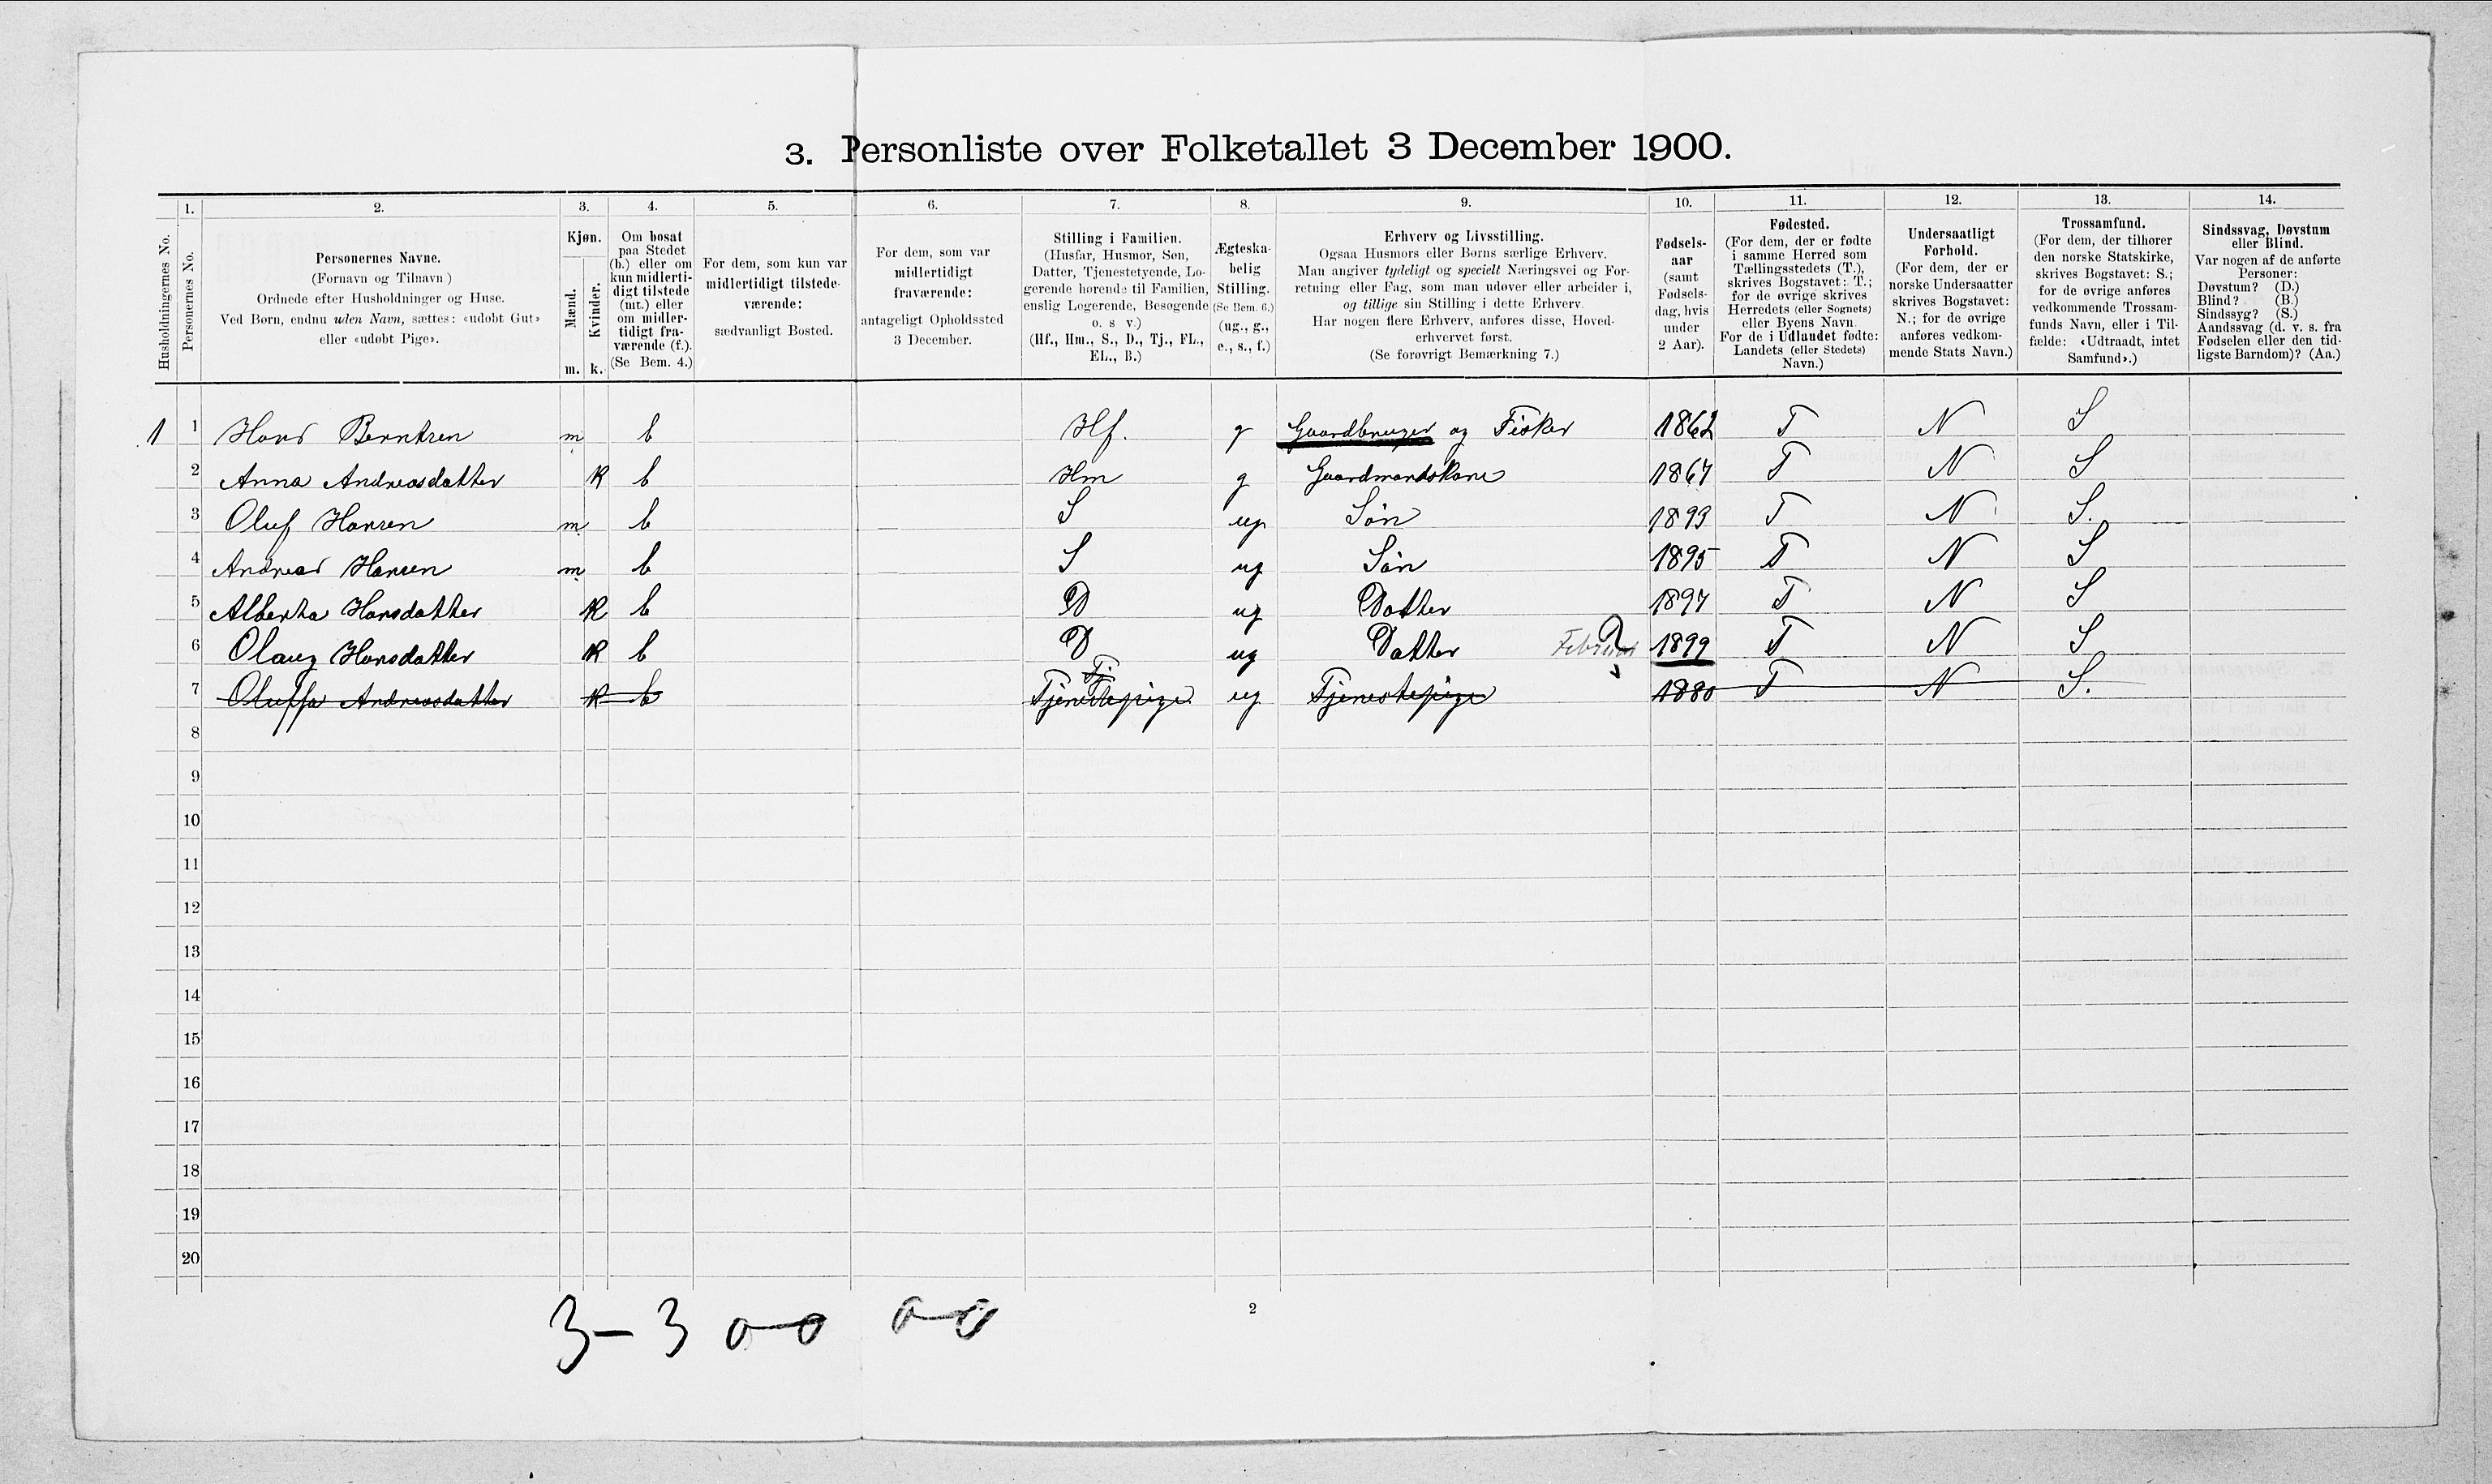 3. Personliste over Folketallet 3 December 1900.
1. 2. 3. 4. 5. 6. 7. 8. 9. 10. 11. 12. 13. 14.
Husholdningernes No.
Personernes No.
Personernes Navne.
(Fornavn og Tilnavn)
Ordnede efter Husholdninger og Huse.
Ved Børn, endnu uden Navn, sættes: «udøbt Gut»
eller «udøbt Pige».
Kjøn.
Mænd.
Kvinder.
m. k.
Om bosat
paa Stedet
(b.) eller om
kun midlerti-
digt tilstede
(mt.) eller
om midler-
tidigt fra-
værende (f.).
(Se Bem. 4.)
For dem, som kun var
midlertidigt tilstede-
værende:
sædvanligt Bosted.
For dem, som var
midlertidigt
fraværende:
antageligt Opholdssted
3 December.
Stilling i Familien.
(Husfar, Husmor, Søn,
Datter, Tjenestetyende, Lo-
gerende hørende til Familien,
enslig Logerende, Besøgende
o. s v.)
(Hf., Hm., S., D., Tj., FL.,
EL., B.)
Ægteska-
belig
Stilling.
(Se Bem. 6.)
(ug., g.,
e., s., f.)
Erhverv og Livsstilling.
Ogsaa Husmors eller Børns særlige Erhverv.
Man angiver tydeligt og specielt Næringsvei og For-
retning eller Fag, som man udøver eller arbeider i,
og tillige sin Stilling i dette Erhverv.
Har nogen flere Erhverv, anføres disse, Hoved-
erhvervet først.
(Se forøvrigt Bemærkning 7.)
Fødsels-
aar
(samt
Fødsels-
dag, hvis
under
2 Aar).
Fødested.
(For dem, der er fødte
i samme Herred som
Tællingsstedets (T.),
skrives Bogstavet: T.;
for de øvrige skrives
Herredets (eller Sognets)
eller Byens Navn.
For de i Udlandet fødte:
Landets (eller Stedets)
Navn.)
Undersaatligt
Forhold.
(For dem, der er
norske Undersaatter
skrives Bogstavet:
N.; for de øvrige
anføres vedkom-
mende Stats Navn.)
Trossamfund.
(For dem, der tilhører
den norske Statskirke,
skrives Bogstavet: S.;
for de øvrige anføres
vedkommende Trossam-
funds Navn, eller i Til-
fælde: «Udtraadt, intet
Samfund».)
Sindssvag, Døvstum
eller Blind.
Var nogen af de anførte
Personer:
Døvstum? (D.)
Blind? (B.)
Sindssyg? (S.)
Aandssvag (d. v. s. fra
Fødselen eller den tid-
ligste Barndom)? (Aa.)
1 1 Hans Berntsen m b Hf. g Gaardbruger og Fisker 1862 T N S
2 Anna Andreasdatter k b Hm g Gaardmandskone 1867 T N S
3 Oluf Hansen m b S ug Søn 1893 T N S.
4 Andreas Hansen m b S ug Søn 1895 T N S
5 Alberta Hansdatter k b D ug Datter 1897 T N S
6 Olaug Hansdatter k b D ug Datter Februar ? 1899 T N S
Tj
7 Oluffa Andreasdatter k b Tjenestepige ug Tjenestepige 1880 T N S.
8
9
10
11
12
13
14
15
16
17
18
19
20
3-3 0-0 0-0
2